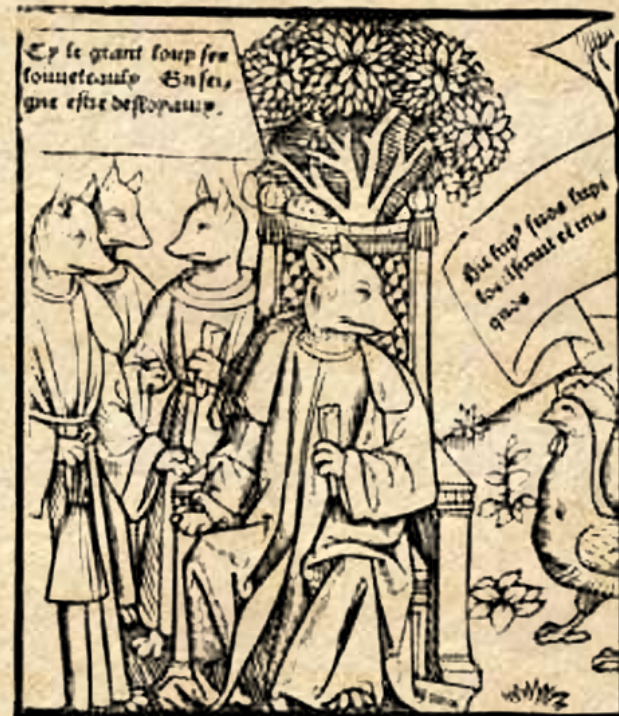 Cy le grant loup ses
louueteaulx Ensei,
gne estre desloyaulx.
Hic lupꝰ suos lupi
los
quos